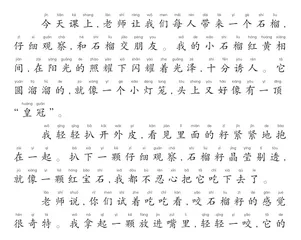 今天课上,老师让我们每人带来一个石榴,
仔细观察,和石榴交朋友。我的小石榴红黄相
间,在阳光的照耀下闪耀着光泽,十分诱人。它
圆溜溜的,就像一个小灯笼,头上又好像有一顶
“皇冠”。
我轻轻扒开外皮,看见里面的籽紧紧地抱
在一起。扒下一颗仔细观察,石榴籽晶莹剔透,
就像一颗红宝石,我都不忍心把它吃下去了。
老师说,你们试着吃吃看,咬石榴籽的感觉
很奇特。我拿起一颗放进嘴里,轻轻一咬,它的